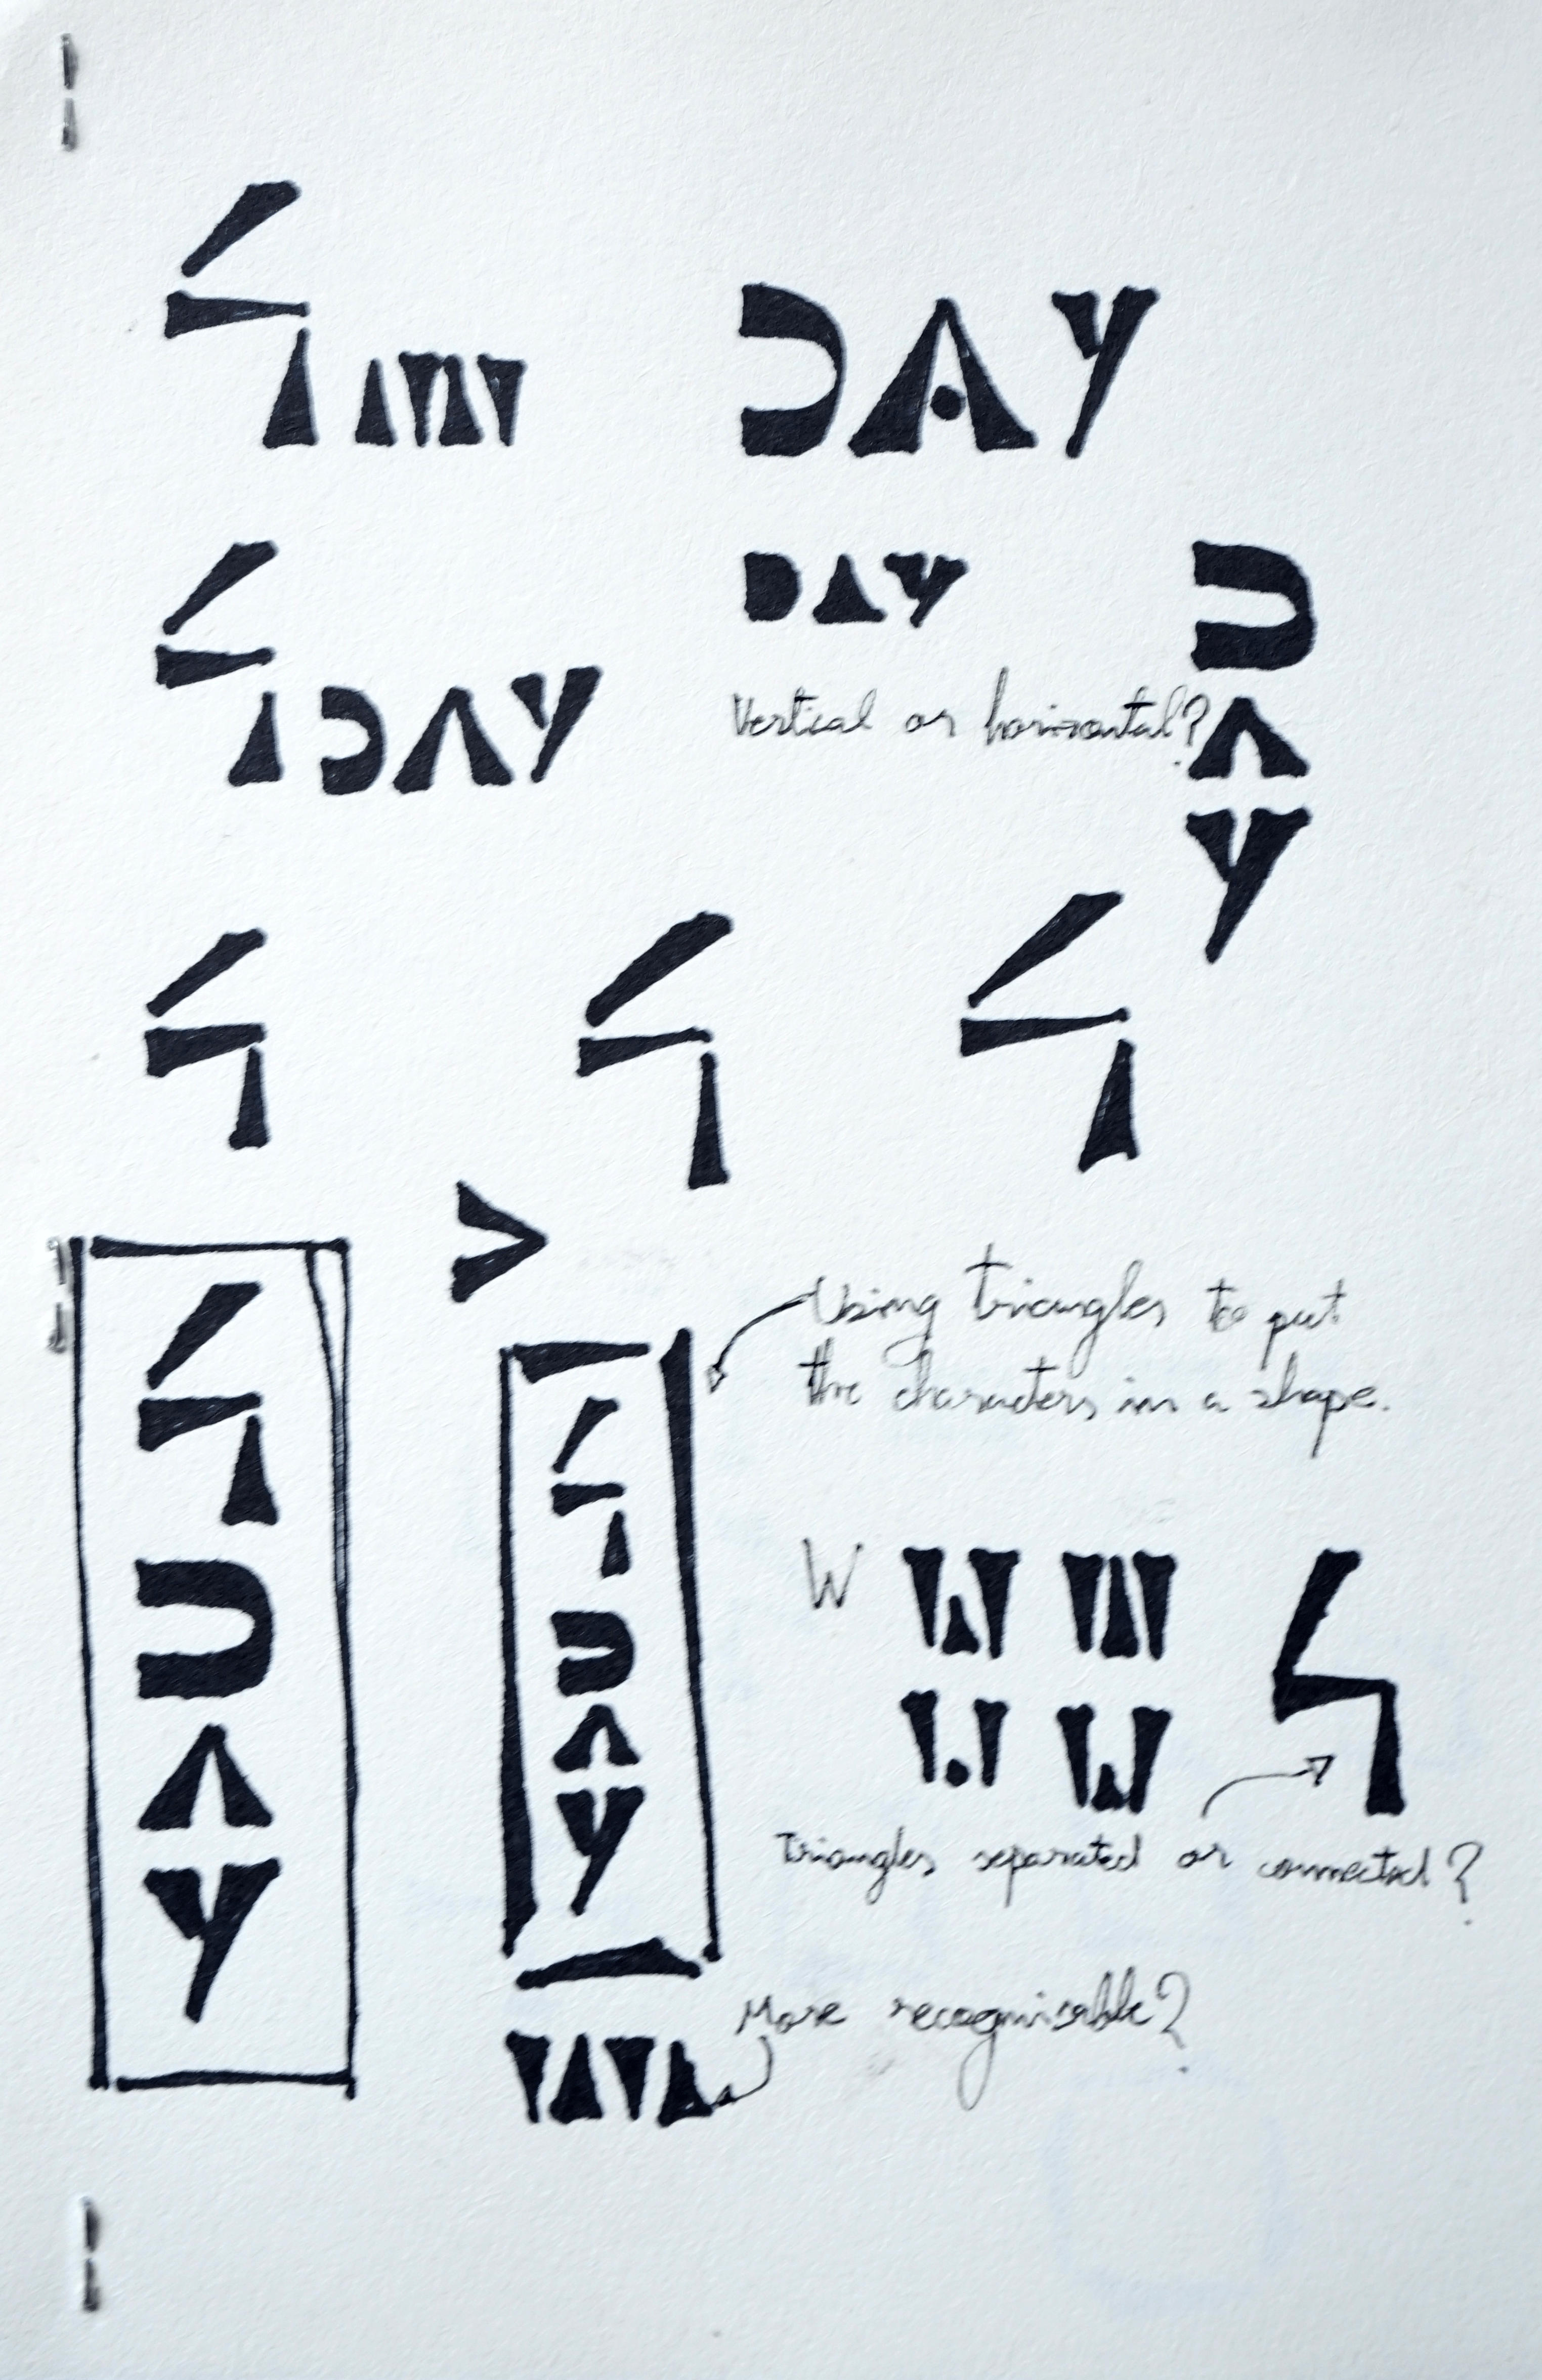 DAY
DAY
DAY
Vertical or horizontal?
DAY
Using triangles to put
the characters in a shape.
DAY
DAY
W
Triangles separated or connected?
More recognisible?